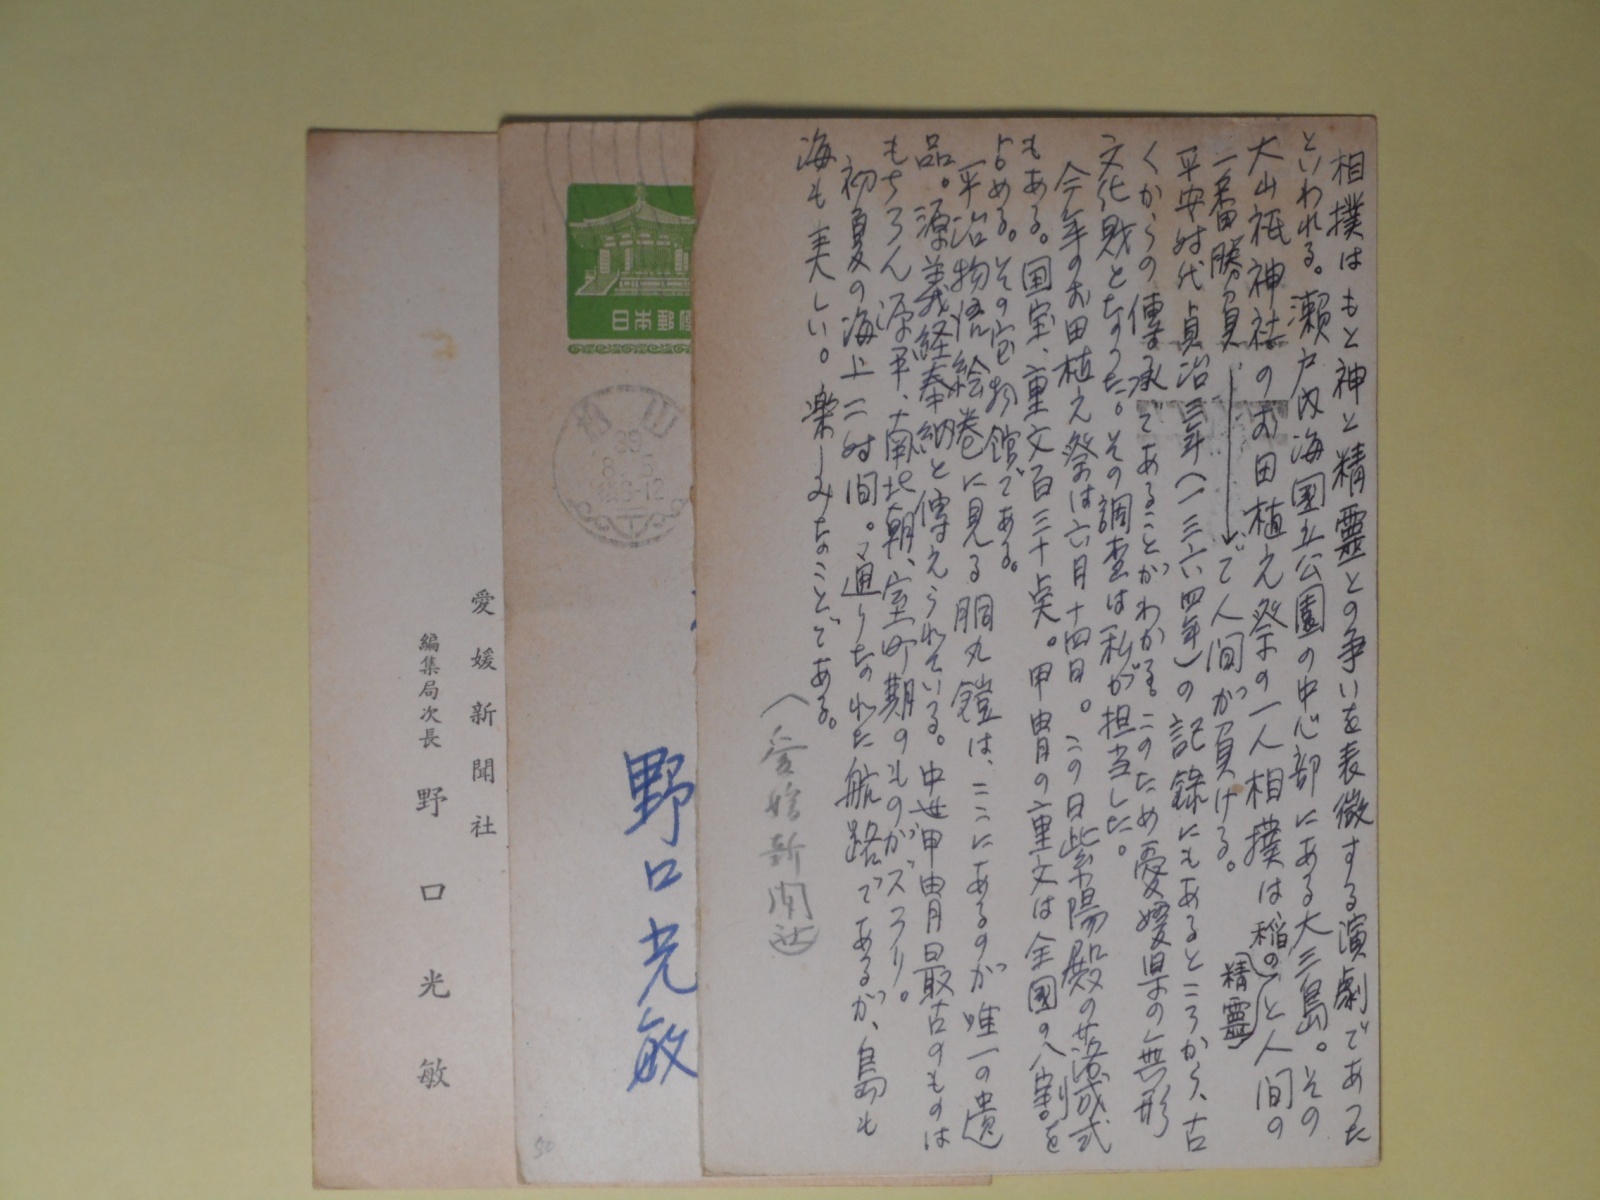 相撲はもと神と精靈との争いを表徴する演劇であった
といわれる。瀬戸内海国立公園の中心部にある大三島。その
大山祇神社のお田植え祭の一人相撲は、稲の(精靈)と人間の
一番勝負で人間が負ける。
平安時代貞治三年(一三六四年)の記録にもあるところから、古
くからの傳承であることがわかる。このため愛媛県の無形
文化財となった。その調査は私が担当した。
今年のお田植え祭は六月十四日。この日紫陽殿の落成式
もある。国宝、重文百三十点。甲冑の重文は全国の八割を
占める。その宝物館である。
平治物語絵巻に見る胴丸鎧は、ここにあるのが唯一の遺
品。源義経奉納と傳えられている。中世甲冑最古のものは
もちろん源平、南北朝、室町期のものがズラリ。
初夏の海上二時間。通りなれた航路であるが、島も
海も美しい。楽しみなことである。
(愛媛新聞社)
日本郵便
松山
39
8.5
8-12
野口光敏
50
愛媛新聞社
編集局次長 野口光敏